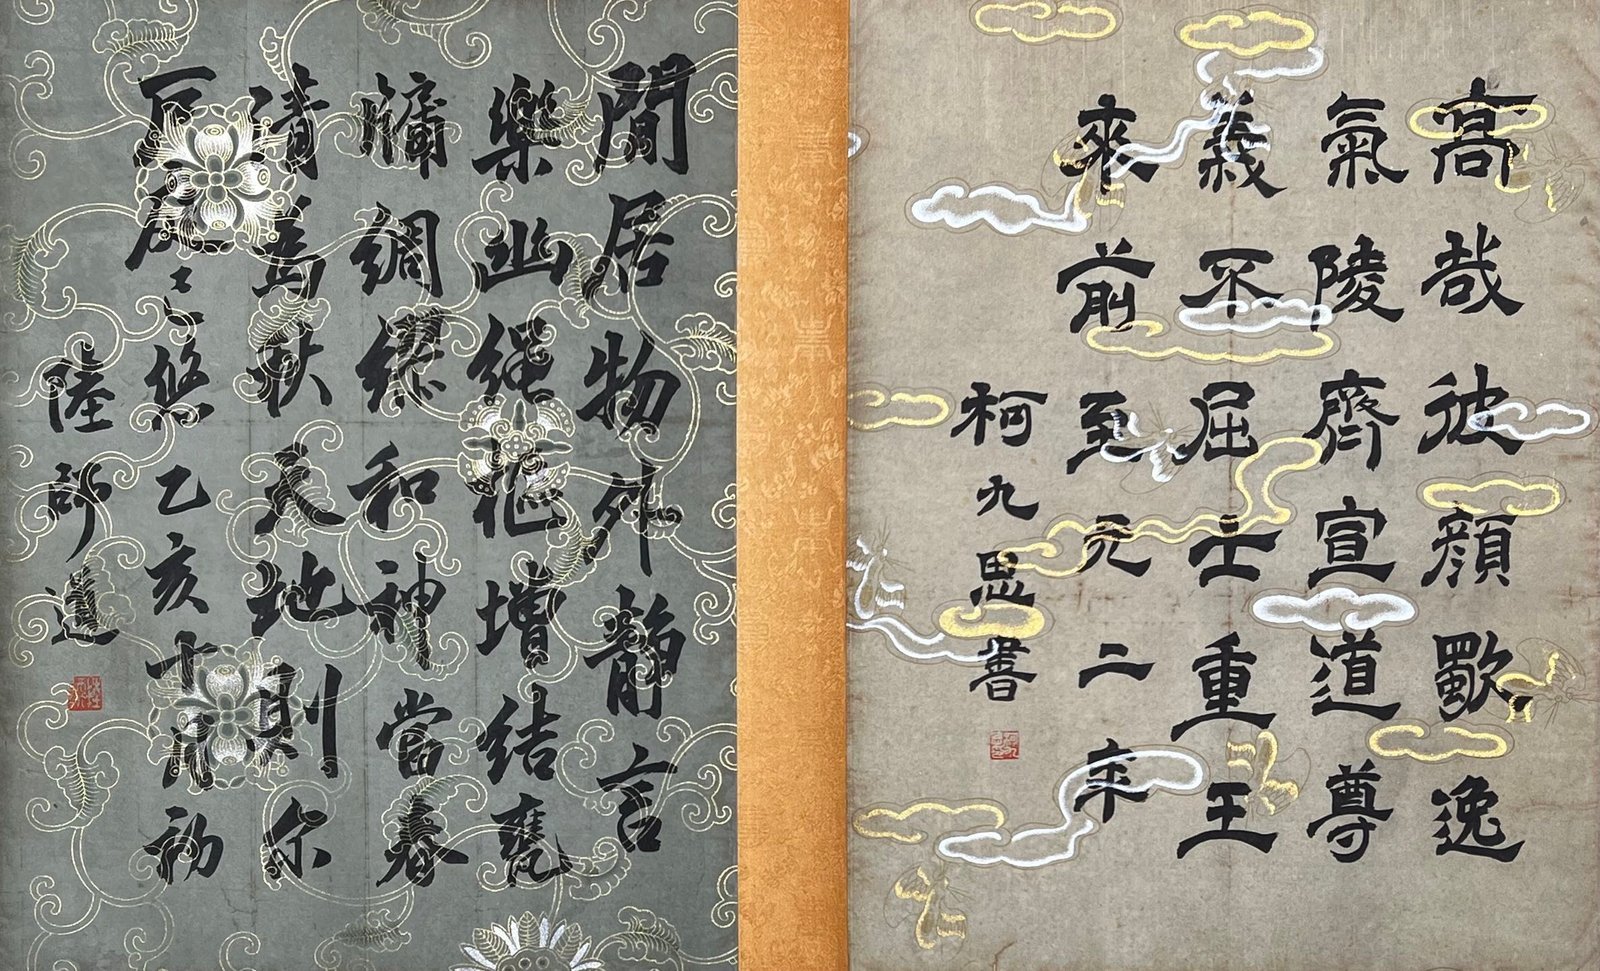 高哉彼顏歜逸
氣陵齊宣道尊
義不屈士重王
來前至元二年
柯九思書
閒居物外靜言
樂幽繩樞增結甕
牖綢繆和神當春
清為秋天地則尔
戶庭悠乙亥十月初
陸師道